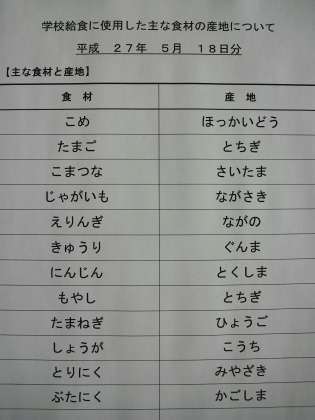 学校給食に使用した主な食材の産地について
平成　２７年　５月　１８日分
【主な食材と産地】
食　材　産　地
こめ　ほっかいどう
たまご　とちぎ
こまつな　さいたま
じゃがいも　ながさき
えりんぎ　ながの
きゅうり　ぐんま
にんじん　とくしま
もやし　とちぎ
たまねぎ　ひょうご
しょうが　こうち
とりにく　みやざき
ぶたにく　かごしま